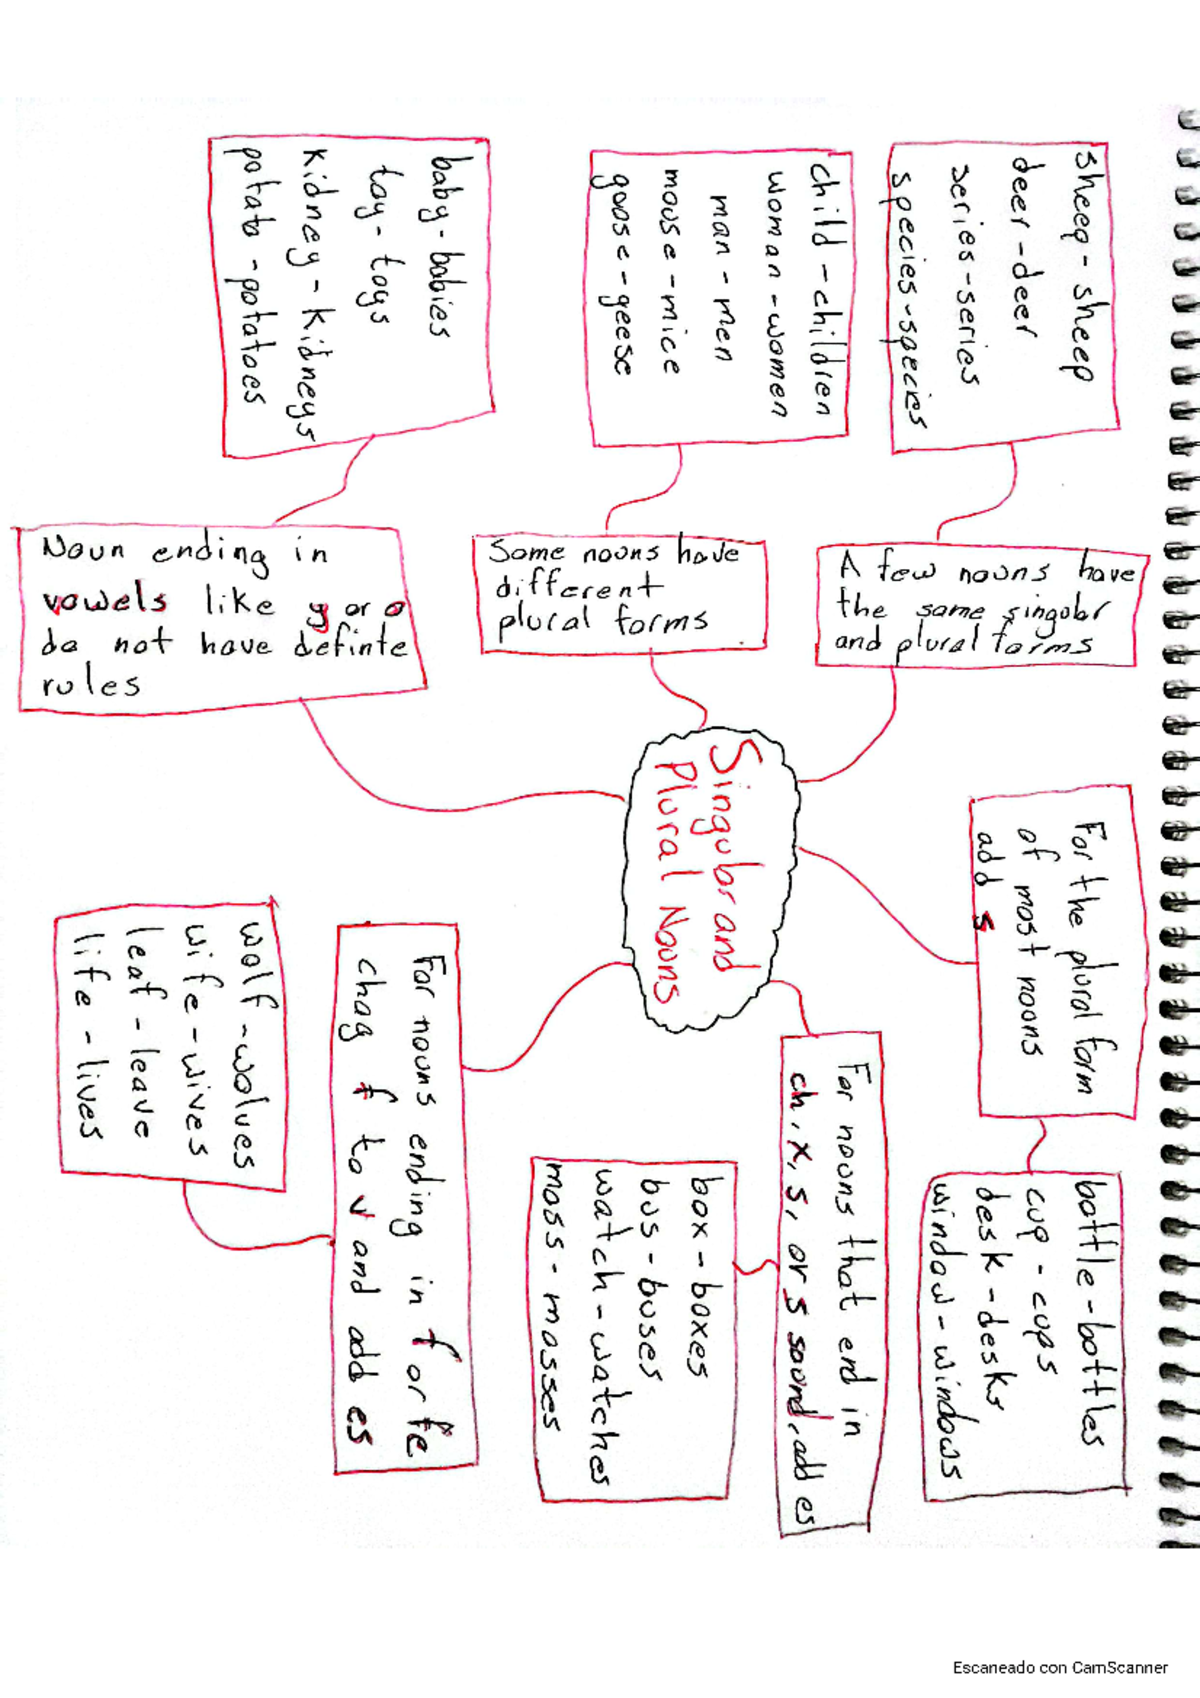 Singular and
Plural Nouns
For the plural form
of most nouns
add s
bottle-bottles
cup-cups
desk-desks
window-windows
For nouns that end in
ch, x, s, or s sound, add es
box-boxes
bus-buses
watch-watches
moss-mosses
For nouns ending in f or fe
chag f to v and add es
wolf-wolves
wife-wives
leaf-leave
life-lives
Noun ending in
vowels like y or o
do not have definte
rules
baby-babies
toy-toys
kidney-kidneys
potato-potatoes
Some nouns have
different
plural forms
child-children
woman-women
man-men
mouse-mice
goose-geese
A few nouns have
the same singular
and plural forms
sheep-sheep
deer-deer
series-series
species-species
Escaneado con CamScanner